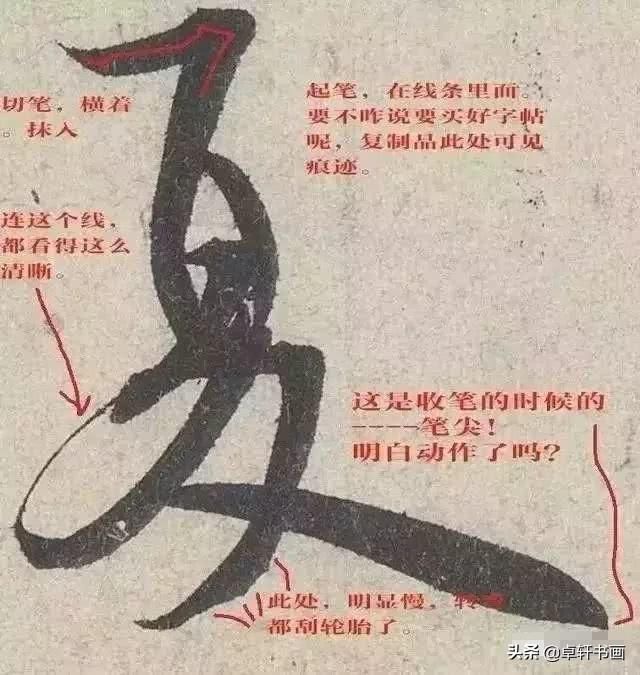 夏
切笔，横着
。抹入
起笔，在线条里面。
要不咋说要买好字帖
呢，复制品此处可见
痕迹。
连这个线，
都看得这么
清晰。
这是收笔的时候的
----笔尖！
明白动作了吗?
此处，明显慢，
都刮轮胎了。
头条 @卓轩书画